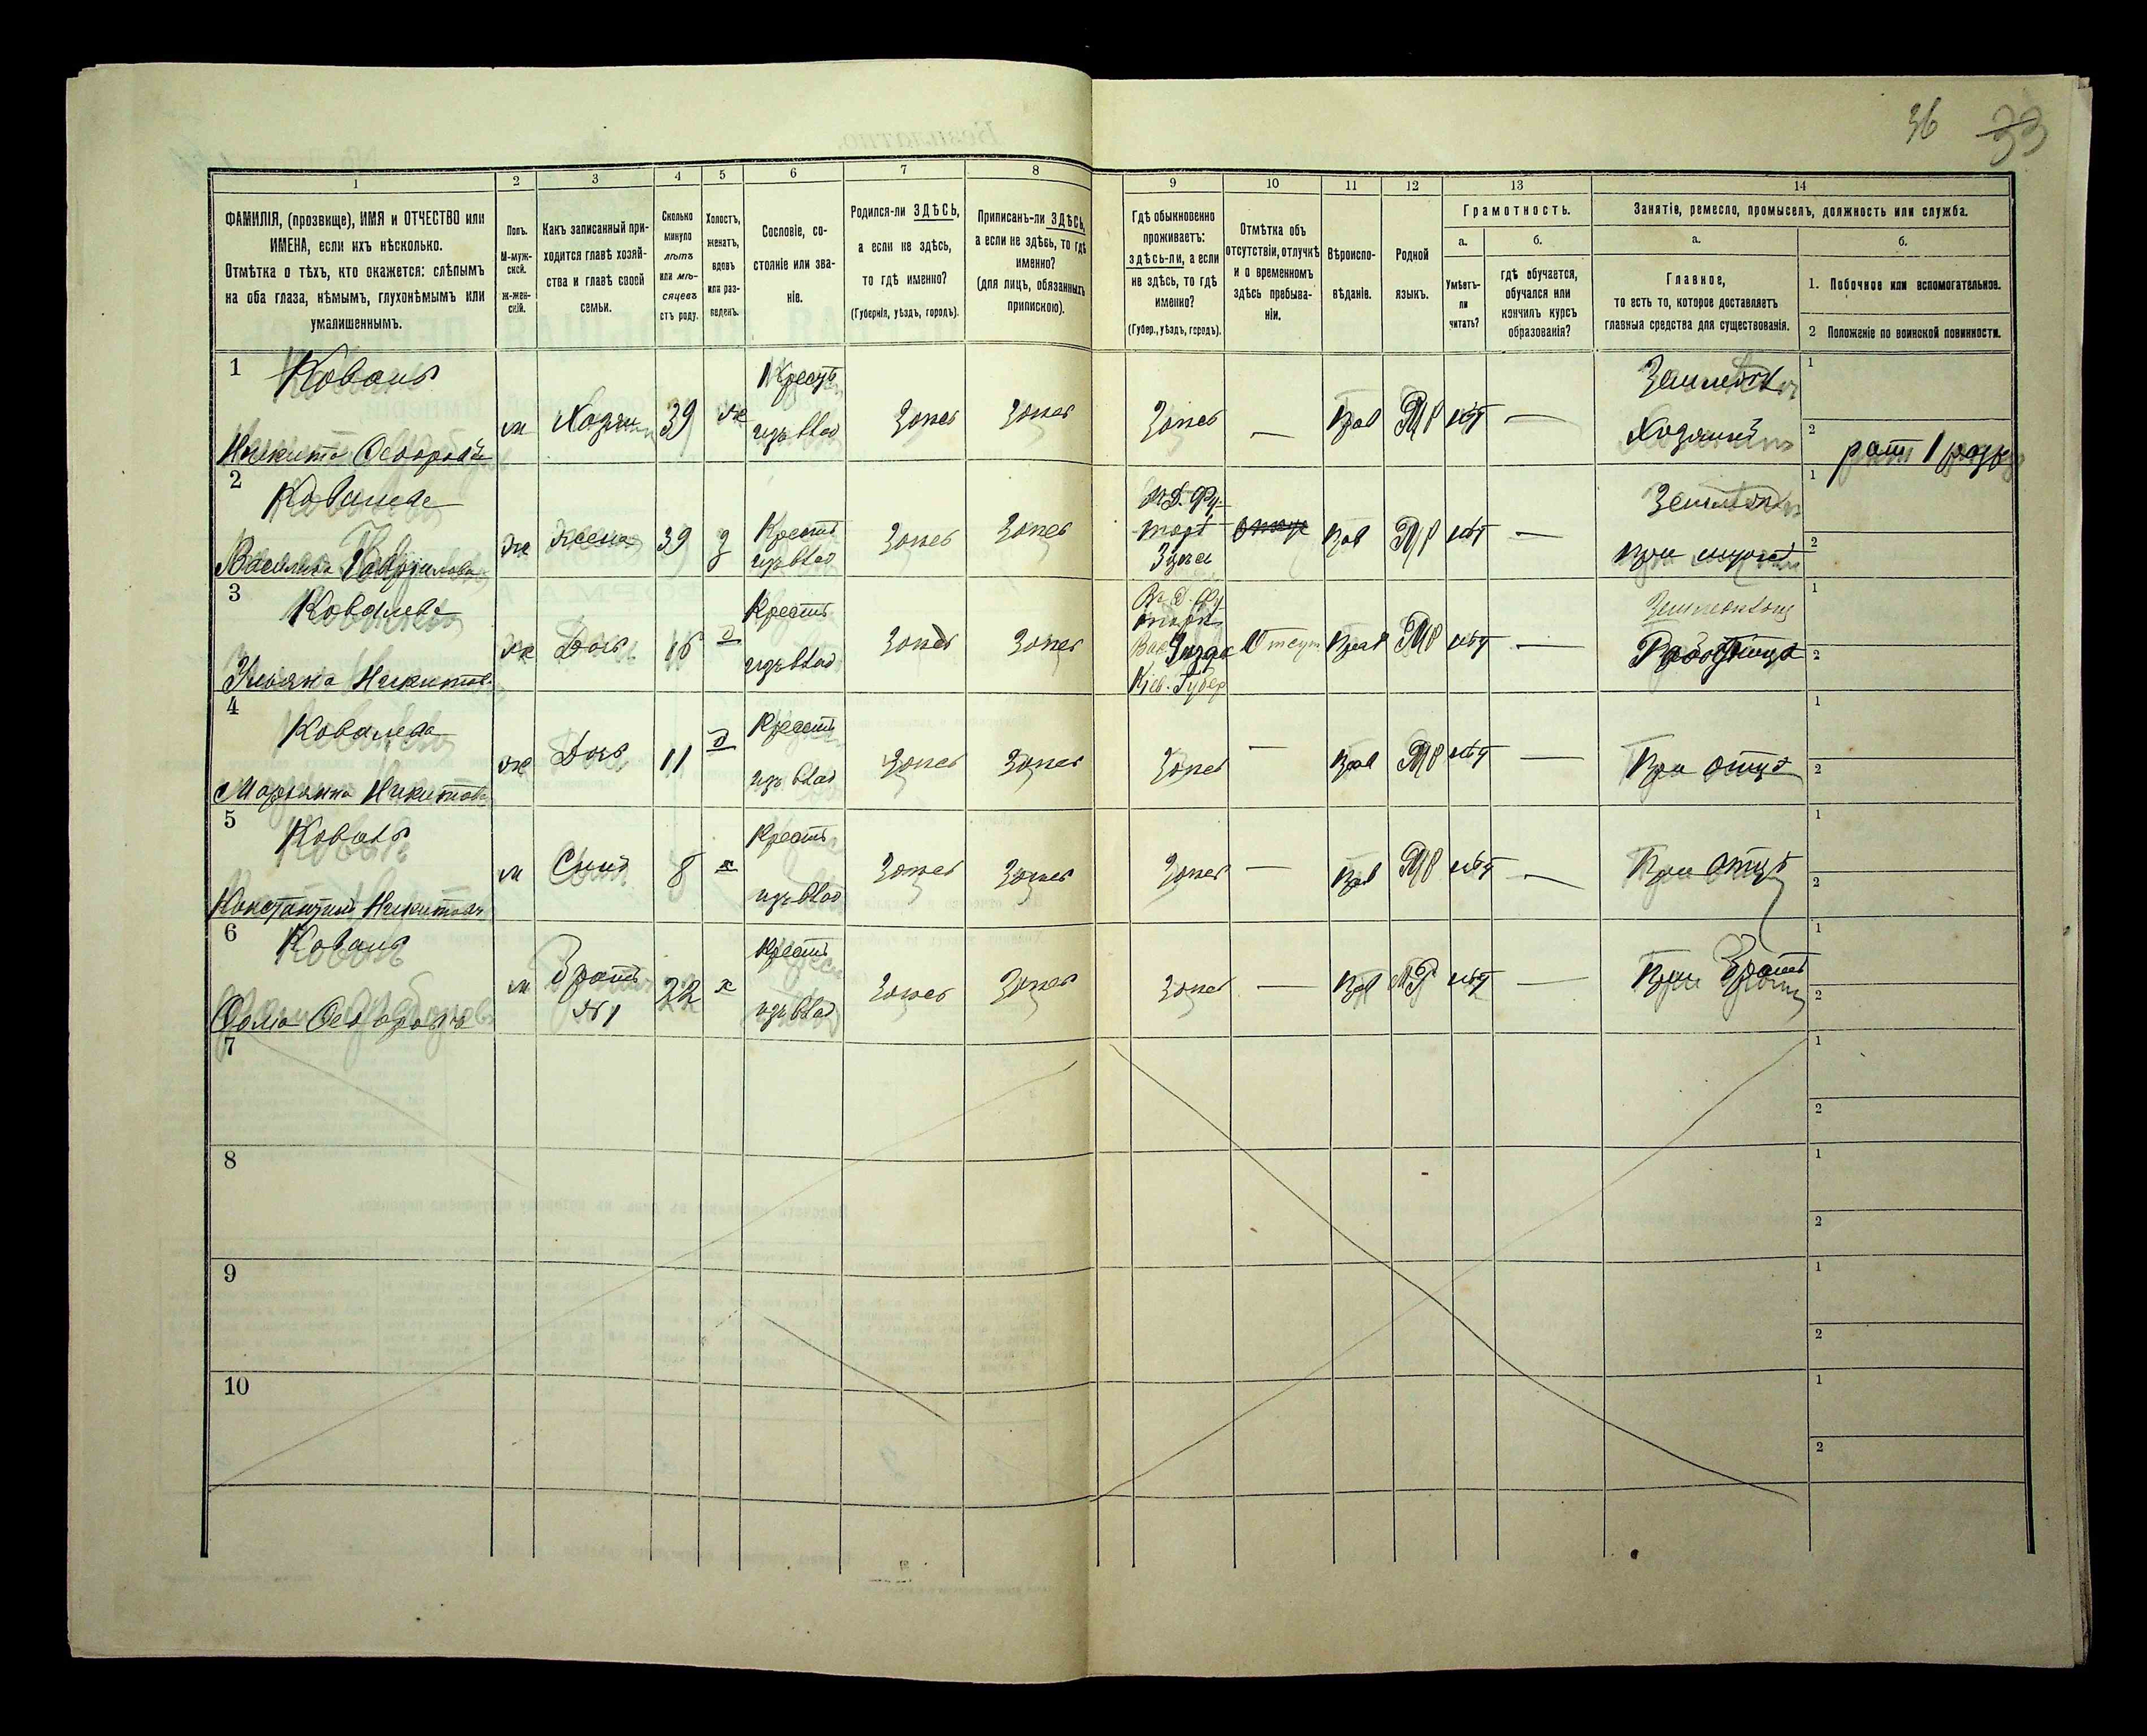 36 33
1 2 3 4 5 6 7 8 9 10 11 12 13 14
ФАМИЛІЯ, (прозвище), ИМЯ и ОТЧЕСТВО или
ИМЕНА, если ихъ нѣсколько.
Отмѣтка о тѣхъ, кто окажется: слѣпымъ
на оба глаза, нѣмымъ, глухонѣмымъ или
умалишеннымъ.
Полъ.
М-муж-
ской.
Ж-жен-
скій.
Какъ записанный при-
ходится главѣ хозяй-
ства и главѣ своей
семьи.
Сколько
минуло
лѣтъ
или мѣ-
сяцевъ
отъ роду.
Холостъ,
женатъ,
вдовъ
или раз-
веденъ.
Сословіе, со-
стояніе или зва-
ніе.
Родился-ли ЗДѢСЬ,
а если не здѣсь,
то гдѣ именно?
(Губернія, уѣздъ, городъ).
Приписанъ-ли ЗДѢСЬ,
а если не здѣсь, то гдѣ
именно?
(для лицъ, обязанныхъ
припискою).
Гдѣ обыкновенно
проживаетъ:
здѣсь-ли, а если
не здѣсь, то гдѣ
именно?
(Губер., уѣздъ, городъ).
Отмѣтка объ
отсутствіи, отлучкѣ
и о временномъ
здѣсь пребыва-
ніи.
Вѣроиспо-
вѣданіе.
Родной
языкъ.
Грамотность.
а.
Умѣетъ-
ли
читать?
б.
гдѣ обучается,
обучался или
кончилъ курсъ
образованія?
Занятіе, ремесло, промыселъ, должность или служба.
а.
Главное,
то есть то, которое доставляетъ
главныя средства для существованія.
б.
1. Побочное или вспомогательное.
2 Положеніе по воинской повинности.
1 Коваль
Никита Ѳедоровъ
м Хозяин 39 ж
Крест
изъ влад
Здѣсь Здѣсь Здѣсь — Прав МР нѣт —
Землед
Хозяинъ
1
2 рат 1 разр
2 Ковалева
Василиса Гаврилова
ж жена 39 з
Крест
изъ влад
Здѣсь Здѣсь
Прав МР нѣт —
Землед
при мужѣ
1
2
3 Ковалева
Ульяна Никитов
ж Дочь 16 д
Крест
изъ влад
Здѣсь Здѣсь
Кіев. Губер
Отсут Прав МР нѣт —
Работница
1
2
4 Ковалева
Марьяна Никитова
ж Дочь 11 д
Крест
изъ влад
Здѣсь Здѣсь Здѣсь — Прав МР нѣт —
При отцѣ
1
2
5 Коваль
Константинъ Никитовъ
м Сынъ 8 х
Крест
изъ влад
Здѣсь Здѣсь Здѣсь — Прав МР нѣт —
При отцѣ
1
2
6 Коваль
Ѳома Ѳедоровъ
м Братъ
№1
22 х
Крест
изъ влад
Здѣсь Здѣсь Здѣсь — Прав МР нѣт —
При братѣ
1
2
7
1
2
8
1
2
9
1
2
10
1
2